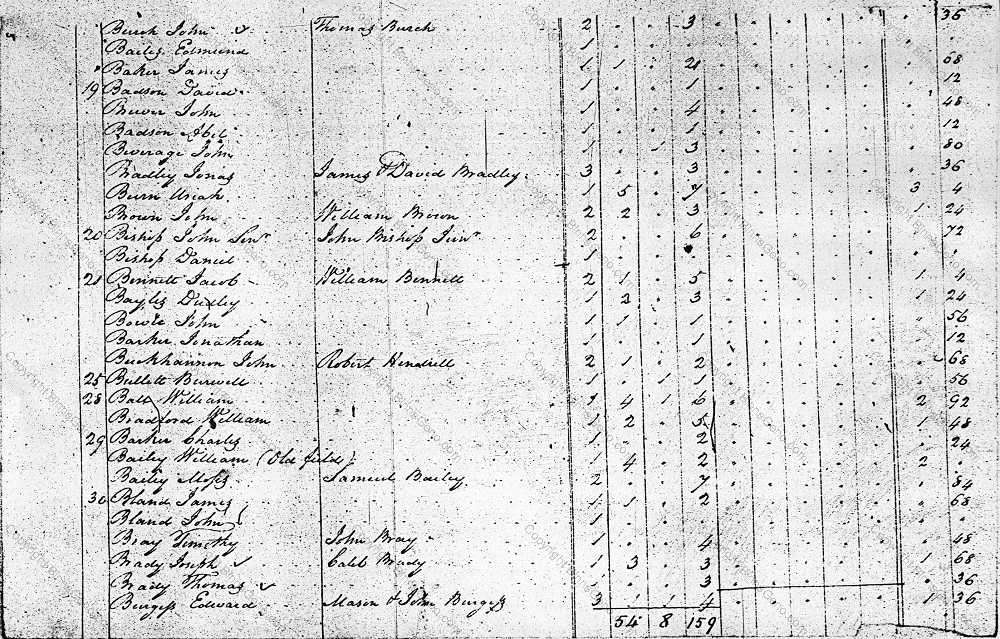 36
Burch John Thomas Burch 2 . . 3
Bailes Edmund 1
Baker James 1 1 . 2 68
19 Badson David 1 . . 1 12
Brewer John 1 . . 4 48
Badson Abel 1 . . 1 12
Beverage John 1 . 1 3 80
Bradley Jonas James & David Bradley 3 . . 3 36
Burn Uriah 1 5 . 7 3 4
Brown John William Brown 2 2 . 3 1 24
20 Bishop John Senr John Bishop Junr 2 . . 6 72
Bishop Daniel 1
21 Bennett Jacob William Bennett 2 1 . 5 1 4
Bayles Dudley 1 2 . 3 1 24
Bowle John 1 1 . 1 56
Barker Jonathan 1 . . 1 12
Buckhannon John Robert Kendrell 2 1 . 2 68
25 Bullett Burwell 1 . 1 1 56
28 Ball William 1 4 1 6 2 92
Bradford William 1 2 . 5 1 48
29 Barker Charles 1 . . 2 24
Bailey William (Old field) 1 4 . 2 2
Bailey Moses Samuel Bailey 2 . . 7 84
30 Bland James 1 1 . 2 68
Bland John 1
Bray Timothy John Bray 1 . . 4 48
Brady Joseph Caleb Brady 1 3 . 3 1 68
Brady Thomas 1 . . 3 36
Burgess Edward Mason & John Burgess 3 1 1 4 1 36
54 8 159